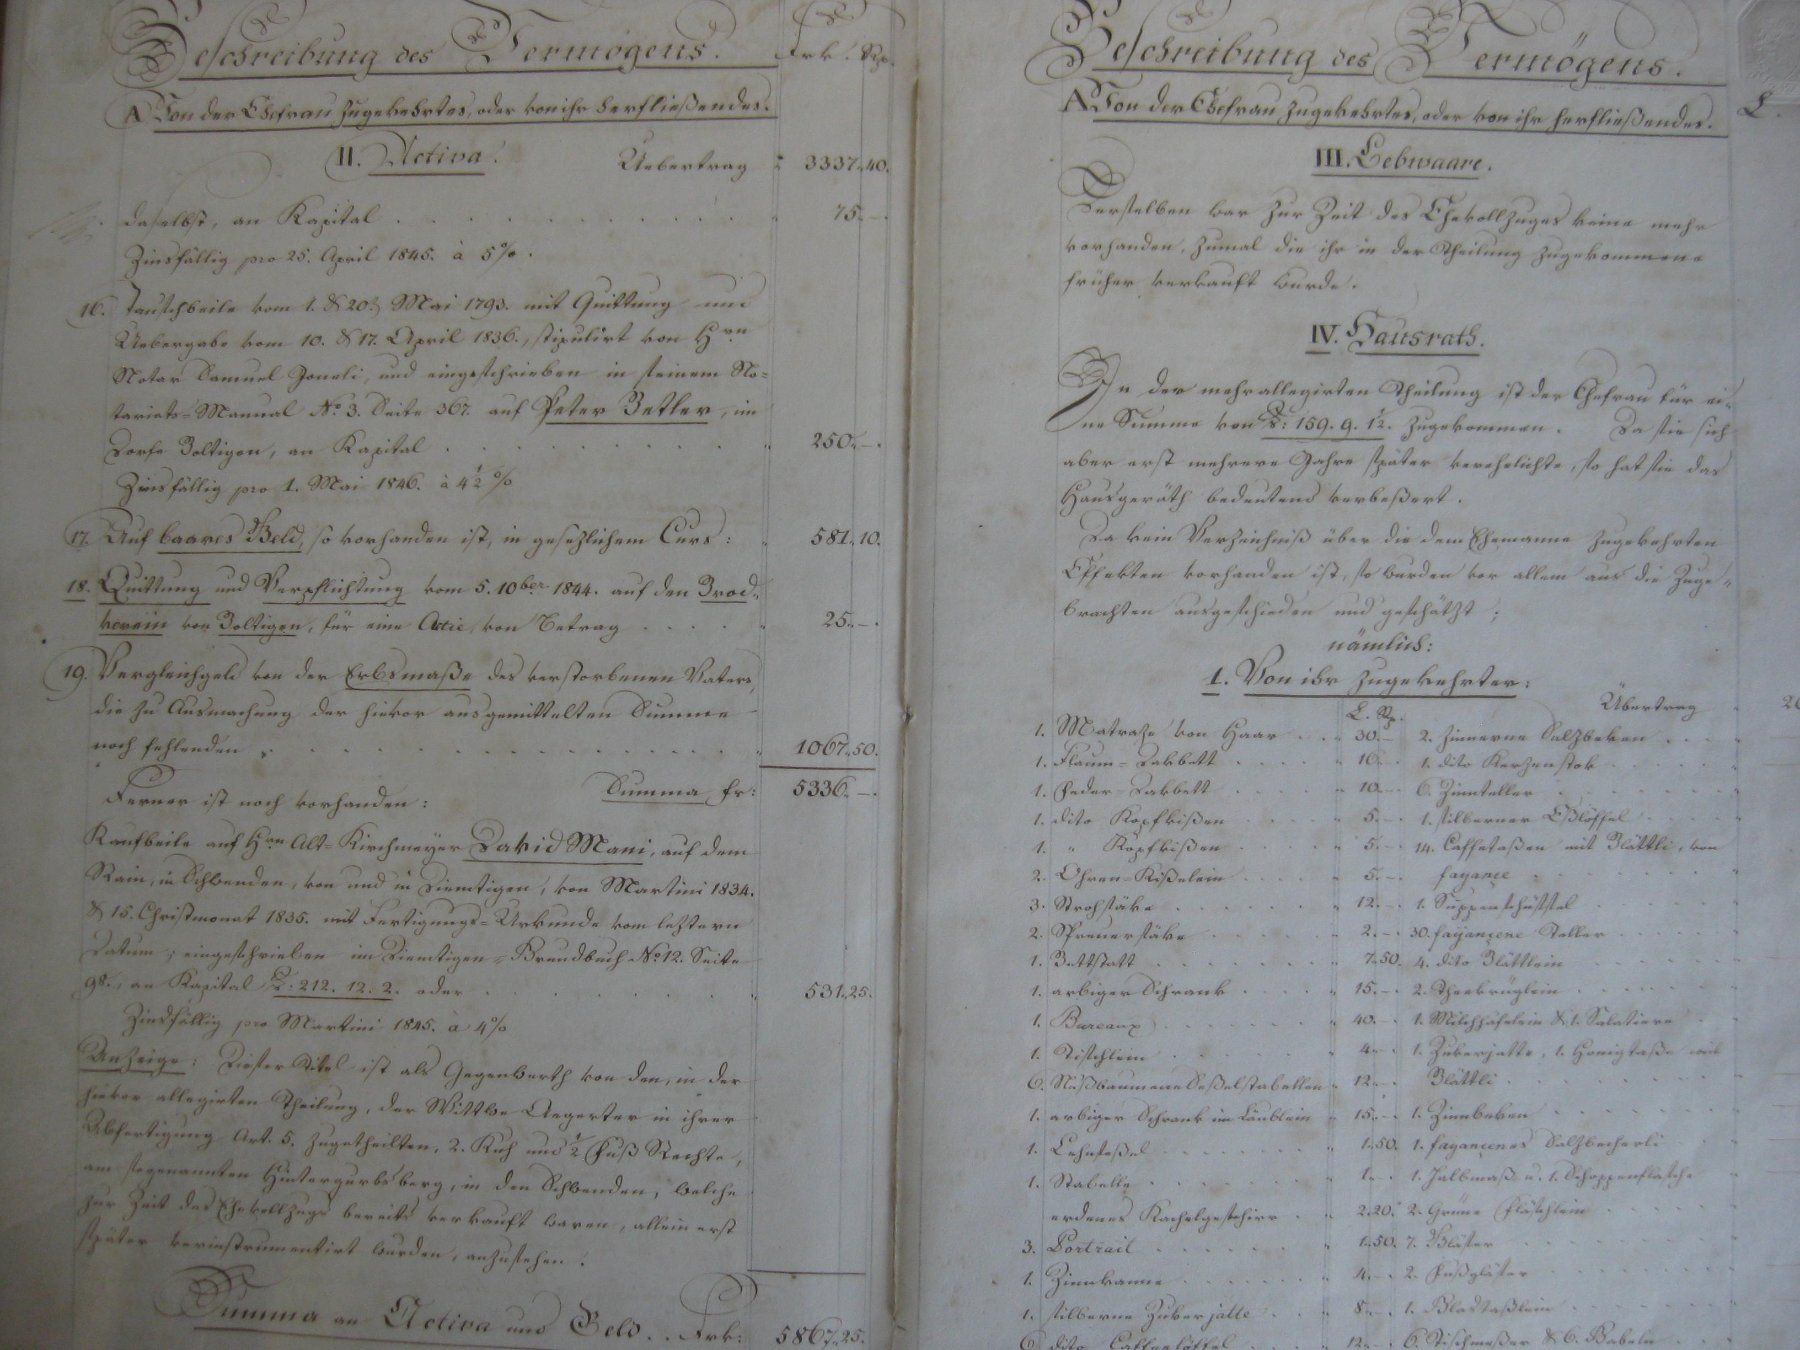 Beschreibung des Vermögens. Frk. Rp.
A Von der Ehefrau zugekehrtes, oder von ihr herfließendes.
II. Activa. Uebertrag " 3337.,40.
daselbst, an Kapital . . . " 75.,—.
Zinsfällig pro 25. April 1845. à 5%.
16. Tauschbeile vom 1. & 20. Mai 1793. mit Quittung und
Uebergabe vom 10. & 17. April 1836., stipulirt von Hrn
Notar Samuel Joneli, und eingeschrieben in seinem No=
tariats=Manual No 3. Seite 367. auf Peter Zetler, im
Dorfe Boltigen, an Kapital . . . " 250.,—.
Zinsfällig pro 1. Mai 1846. à 4½ %
17. Auf baares Geld, so vorhanden ist, in gesezlichem Curs: " 581.,10.
18. Quittung und Verpflichtung vom 5. 10ber 1844. auf den Brod=
verein von Boltigen, für eine Actie, von Betrag . . . " 25.,—.
19. Vergleichgeld von der Erbsmaße des verstorbenen Vaters,
die zu Ausmachung der hievor ausgemittelten Summe
noch fehlenden . . . " 1067.,50.
Summa fr: 5336.,—.
Ferner ist noch vorhanden:
Kaufbeile auf Hrn Alt=Kirchmeyer David Mani, auf dem
Rain, in Schwenden, von und in Diemtigen, von Martini 1834.
& 15. Christmonat 1835. mit Fertigungs=Urkunde vom leztern
Datum; eingeschrieben im Diemtigen=Grundbuch No 12. Seite
98., an Kapital 212. 12. 2. oder . . . " 531.,25.
Zinsfällig pro Martini 1845. à 4%
Anzeige: Dieser Titel ist als Gegenwerth von den, in der
hievor allegirten Theilung, der Wittwe Aegerter in ihrer
Abfertigung Art. 5. zugetheilten, 2. Kuh und ½ Fuß Rechte,
am sogenannten Hintergurbsberg, in den Schwenden, welche
zur Zeit des Ehevollzugs bereits verkauft waren, allein erst
später verinstrumentirt wurden, anzusehen.
Summa an Activa und Geld. . Frk: 5867.,25.
Beschreibung des Vermögens.
A Von der Ehefrau zugekehrtes, oder von ihr herfließendes. L.
III. Lebwaare.
Derselben war zur Zeit des Ehevollzuges keine mehr
vorhanden, zumal die ihr in der Theilung zugekommene
früher verkauft wurde.
IV. Hausrath.
In der mehrallegirten Theilung ist der Ehefrau für ei=
ne Summe von 159. 9. 1½. zugekommen. Da sie sich
aber erst mehrere Jahre später verehelichte, so hat sie das
Hausgeräth bedeutend verbeßert.
Da kein Verzeichniß über die dem Ehemanne zugekehrten
Effekten vorhanden ist, so wurden vor allem aus die Zuge=
brachten ausgeschieden und geschätzt;
nämlich:
1. Von ihr zugekehrter:
L. Rp. Übertrag "
1. Matraze von Haar . . " 30.— 2. zinnerne Salzbeken . . .
1. Flaum=Dakbett . . . " 16.— 1. dito Kerzenstok . . .
1. Feder=Dakbett . . . " 10.— 6. Zinnteller . . .
1. dito Kopfkißen . . . " 5.— 1. silberner Eßlöffel . . .
1. " Kopfkißen . . . " 5.— 14. Caffetaßen mit Blättli, von
2. Ohren=Kißelein . . . " 5.— fayance . . .
3. Strohsäke . . . " 12.— 1. Suppenschüssel . . .
2. Spreuersäke . . . " 2.— 30. fayancene Teller . . .
1. Bettstatt . . . " 7.50. 4. dito Blättlein . . .
1. arbiger Schrank . . . " 15.— 2. Theekrüglein . . .
1. Bureaux . . . " 40.— 1. Milchhäfelein & 1. Salatiere . .
1. Tischlein . . . " 4.— 1. Zukerjatte, 1. Honigtaße mit
6. Nußbaumene Seßelstabellen " 12.— Blättli . . .
1. arbiger Schrank im Läublein " 15.— 1. Zinnbeken . . .
1. Lehnseßel . . . " 1.50. 1. fayancenes Salzbecherli . .
1. Stabelle . . . " 1.— 1. Halbmaß u. 1. Schoppenflasche
erdenes Kachelgeschirr . " 2.20. 2. Grüne Fläschlein . . .
3. Portrait . . . " 1.50. 7. Gläser . . .
1. Zinnkanne . . . " 4.— 2. Fußgläser . . .
1. silberne Zukerjatte . . " 8.— 1. Glastaßlein . . .
6. dito Caffeelöffel . . " 12.— 6. Tischmeßer & 6. Gabeln . .